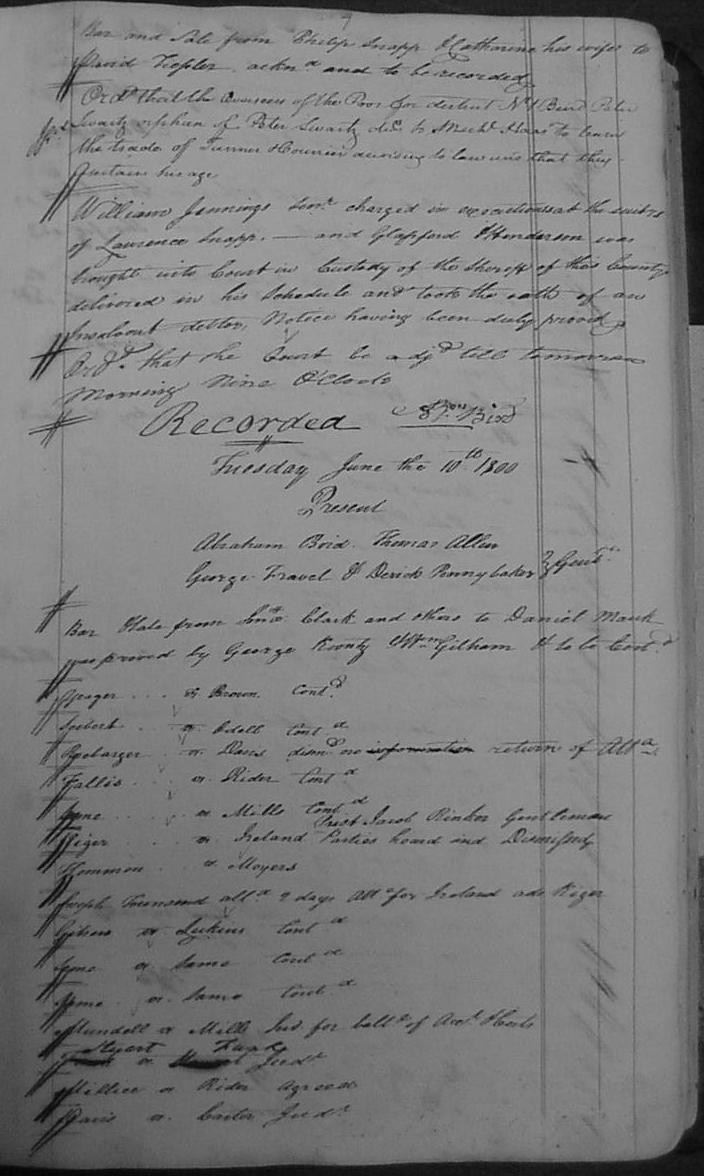 9
Bar and Sale from Philip Snapp & Catharine his wife to
David ackn.d and to be recorded
Ord.d that the Overseers of the Poor for district N.o 1 Bind Peter
Swartz orphan of Peter Swartz dec.d to Mich.l Haas to learn
the trade of Tanner & Currier according to law untill that they
attain his age
William Jennings Sen.r charged in executions at the suits
of Lawrence Snapp, — and Glassford & Henderson was
brought into Court in Custody of the Sheriff of this County
delivered in his Schedule and took the oath of an
Insolvent debtor, Notice having been duly proved
Ord.d that the Court be adj.d till tomorrow
Morning Nine O'Clock
Recorded Bird
Tuesday June the 10th 1800
Present
Abraham Bird. Thomas Allen
George Fravel & Derick Pennybaker } Gent.n
Bar & Sale from Clark and others to Daniel Mauk
was proved by George & W.m Gilham & to be Cert.d
Yeager ... vs Brown Cont.d
Seebert vs Odell Cont.d
vs Davis dism.d no information return of Att.a
Fallis vs Rider Cont.d
Same vs Mills Cont.d
Kiger vs Ireland Parties heard and Dismissed
Prest Jacob Rinker Gentleman
vs Moyers
Joseph Townsend all.d 2 days Att.e for Ireland ads Kiger
Gibson vs Cont.d
Same vs Same Cont.d
Same vs Same Cont.d
Mundell vs Mills Jud. for ball.e of Acc.t & Costs
Stuert Funk
vs Jud.t
vs Rider Agreed
Davis vs. Carter Jud.t